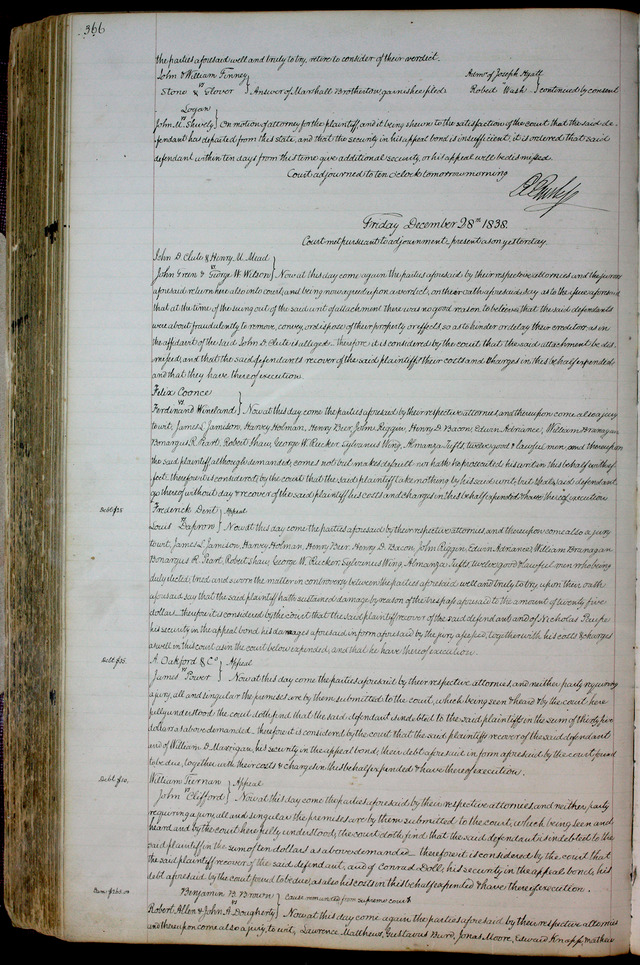 366
the parties aforesaid well and truly to try, retire to consider of their verdict.
John & William Finney
vs
Stone & Glover } Answer of Marshall Brotherton garnishee filed
Admr of Joseph Hyatt
Robert Wash } continued by consent
Logan
vs
John M. Shively } On motion of attorney for the plaintiff, and it being shewn to the satisfaction of the court that the said de-
fendant has departed from this state, and that the security in his appeal bond is insufficient, it is ordered that said
defendant within ten days from this time give additional security or his appeal will be dismissed.
Court adjourned to ten o'clock tomorrow morning
Friday December 28th 1838.
Court met pursuant to adjournment, present as on yesterday.
John D. Clute & Henry M. Mead
vs
John Green & George W. Wilson } Now at this day come again the parties aforesaid by their respective attornies and the jurors
aforesaid return here also into court, and being now agreed upon a verdict, on their oath aforesaid say as to the issue aforesaid
that at the time of the suing out of the said writ of attachment there was no good reason to believe that the said defendants
were about fraudulently to remove, convey, or dispose of their property or effects so as to hinder or delay their creditors as in
the affidavit of the said John D. Clute is alleged. Therefore it is considered by the court that the said attachment be dis-
missed, and that the said defendants recover of the said plaintiffs their costs and charges in this behalf expended
and that they have thereof execution.
Felix Coonce
vs
Ferdinand Wineland } Now at this day come the parties aforesaid by their respective attornies, and thereupon come also a jury
to wit: James L. Jamison, Harvey Holman, Henry Bier, John Riggin, Henry D. Bacon, Edwin Adriance, William Branagan
Bonargus R. Peart, Robert Shaw, George W. Rucker, Sylvanus Wing, Almanza Tufts, twelve good & lawful men, and thereupon
the said plaintiff although demanded, comes not but makes default nor hath he prosecuted his writ in this behalf with ef-
fect. therefore it is considered by the court that the said plaintiff take nothing by his said writ, but that the said defendant
go thereof without day & recover of the said plaintiff his costs and charges in this behalf expended & have thereof execution
Frederick Dent } Appeal
vs
Louis Dapron } Now at this day come the parties aforesaid by their respective attornies and thereupon come also a jury
to wit, James L. Jamison, Harvey Holman, Henry Bier, Henry D. Bacon, John Riggin, Edwin Adriance, William Branagan
Bonargus R. Peart, Robert Shaw, George W. Rucker, Sylvanus Wing, Almanza Tufts, twelve good & lawful men who being
duly elected, tried and sworn the matter in controversy between the parties aforesaid well and truly to try upon their oath
aforesaid say that the said plaintiff hath sustained damage by reason of the trespass aforesaid to the amount of twenty five
dollars. therefore it is considered by the court that the said plaintiff recover of the said defendant and of Nicholas
his security in the appeal bond, his damages aforesaid in form aforesaid by the jury assessed, together with his costs & charges
as well in this court as in the court below expended, and that he have thereof execution.
A. Oakford & Co. } Appeal
vs
James Power } Now at this day come the parties aforesaid by their respective attornies, and neither party requiring
a jury, all and singular the premises are by them submitted to the court, which being seen & heard & by the court here
fully understood the court doth find that the said defendant is indebted to the said plaintiffs in the sum of thirty five
dollars as above demanded. therefore it is considered by the court that the said plaintiffs recover of the said defendant
and of William D. his security in the appeal bond, their debt aforesaid in form aforesaid by the court found
to be due, together with their costs & charges in this behalf expended & have thereof execution.
Debt $10.
William Tiernan } Appeal
vs
John Clifford } Now at this day come the parties aforesaid by their respective attornies and neither party
requiring a jury, all and singular the premises are by them submitted to the court, which being seen and
heard and by the court here fully understood, the court doth find that the said defendant is indebted to the
said plaintiff in the sum of ten dollars as above demanded. therefore it is considered by the court that
the said plaintiff recover of the said defendant, and of Conrad Doll, his security in the appeal bond, his
debt aforesaid by the court found to be due, as also his costs in this behalf expended & have thereof execution.
Benjamin B. Brown } cause remanded from supreme court
vs
Robert Allen & John H. Dougherty } Now at this day come again the parties aforesaid by their respective attornies
and thereupon come also a jury, to wit, Lawrence Matthews, Gustavus Bird, Jonas Moore, Edward Knapp, Mathew